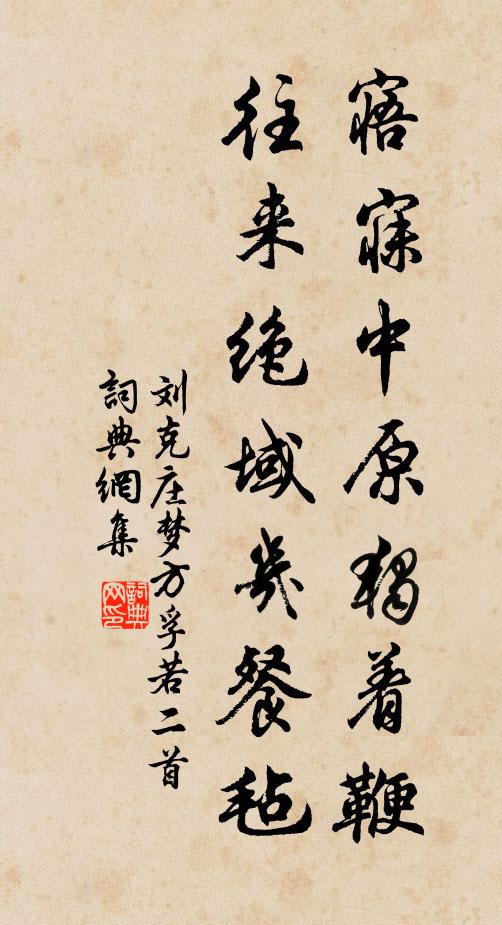 寤寐中原独着鞭
往来绝域几餐毡
刘克庄梦方孚若二首
詞典網集
詞典网印